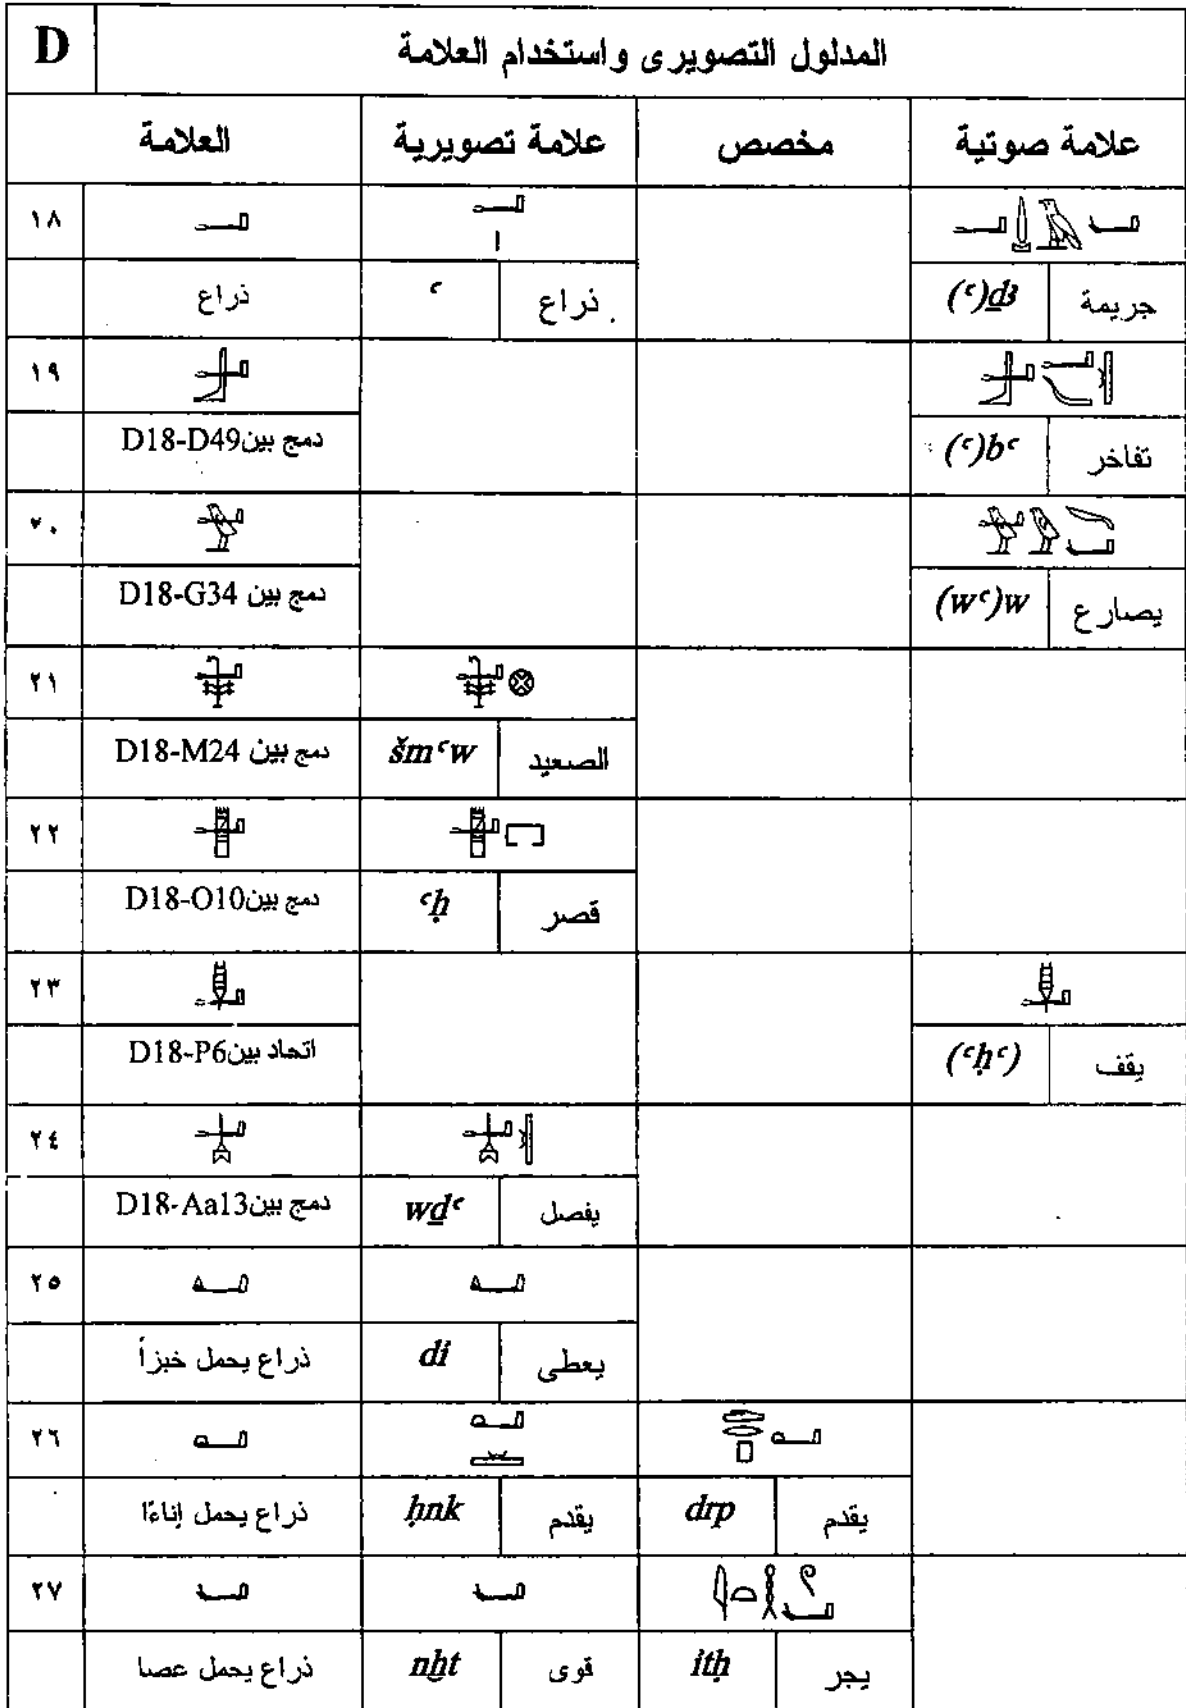 D المدلول التصويرى واستخدام العلامة
العلامة علامة تصويرية مخصص علامة صوتية
١٨
ذراع ꜥ ذراع (ꜥ)ḏꜣ جريمة
١٩
دمج بين D18-D49 (ꜥ)bꜥ تفاخر
٢٠
دمج بين D18-G34 (wꜥ)w يصارع
٢١
دمج بين D18-M24 šmꜥw الصعيد
٢٢
دمج بين D18-O10 ꜥḥ قصر
٢٣
اتحاد بين D18-P6 (ꜥḥꜥ) يقف
٢٤
دمج بين D18-Aa13 wḏꜥ يفصل
٢٥
ذراع يحمل خبزاً di يعطى
٢٦
ذراع يحمل إناءًا ḥnk يقدم drp يقدم
٢٧
ذراع يحمل عصا nḫt قوى itḥ يجر